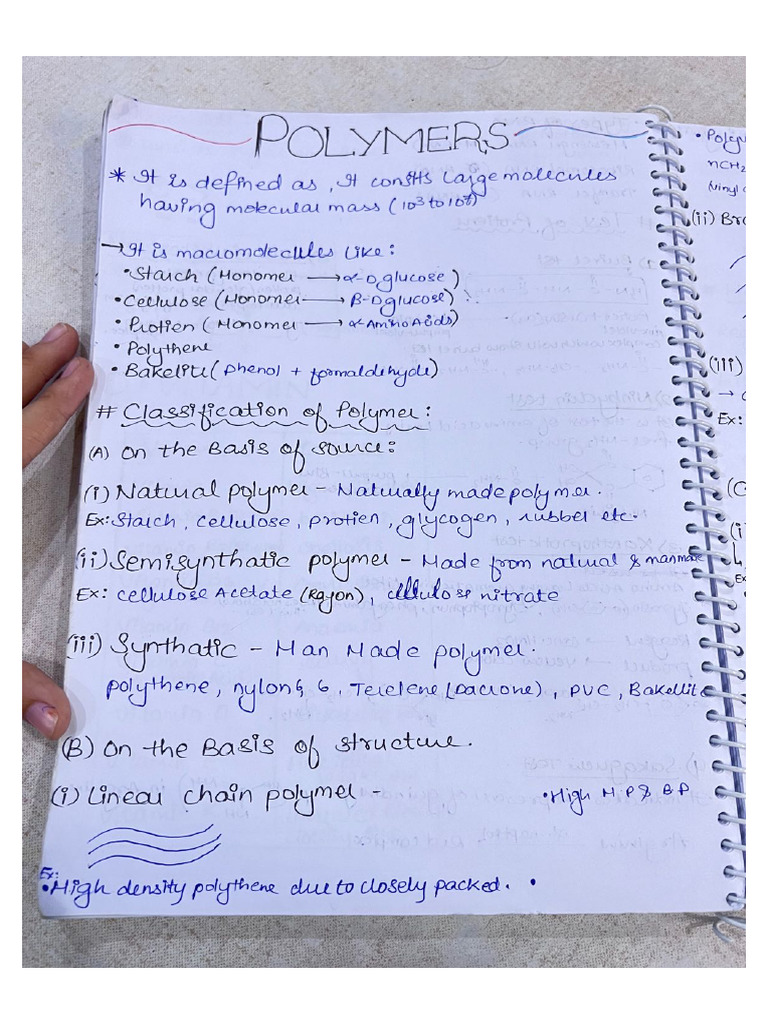 POLYMERS
* It is defined as, It consits Large molecules
having molecular mass (10³ to 10⁷)
→ It is macromolecules like:
• Starch (Monomer → α-D glucose)
• Cellulose (Monomer → β-D glucose)
• Protien (Monomer → α-Amino Acids)
• Polythene
• Bakelite (Phenol + formaldehyde)
# Classification of Polymer:
(A) On the Basis of source:
(i) Natural polymer - Naturally made polymer.
Ex: Starch, cellulose, protien, glycogen, rubber etc.
(ii) Semisynthatic polymer - Made from natural & manmade
Ex: cellulose Acetate (Rayon), cellulose nitrate
(iii) Synthatic - Man Made polymer.
polythene, nylon 6, 6, Terelene (Dacrone), PVC, Bakellite
(B) On the Basis of structure.
(i) Linear chain polymer -
• High M.P & B.P
Ex:
• High density polythene due to closely packed. •
• Polym
nCH₂
(vinyl
(ii) Bra
(iii)
Ex:
(i)
Ex